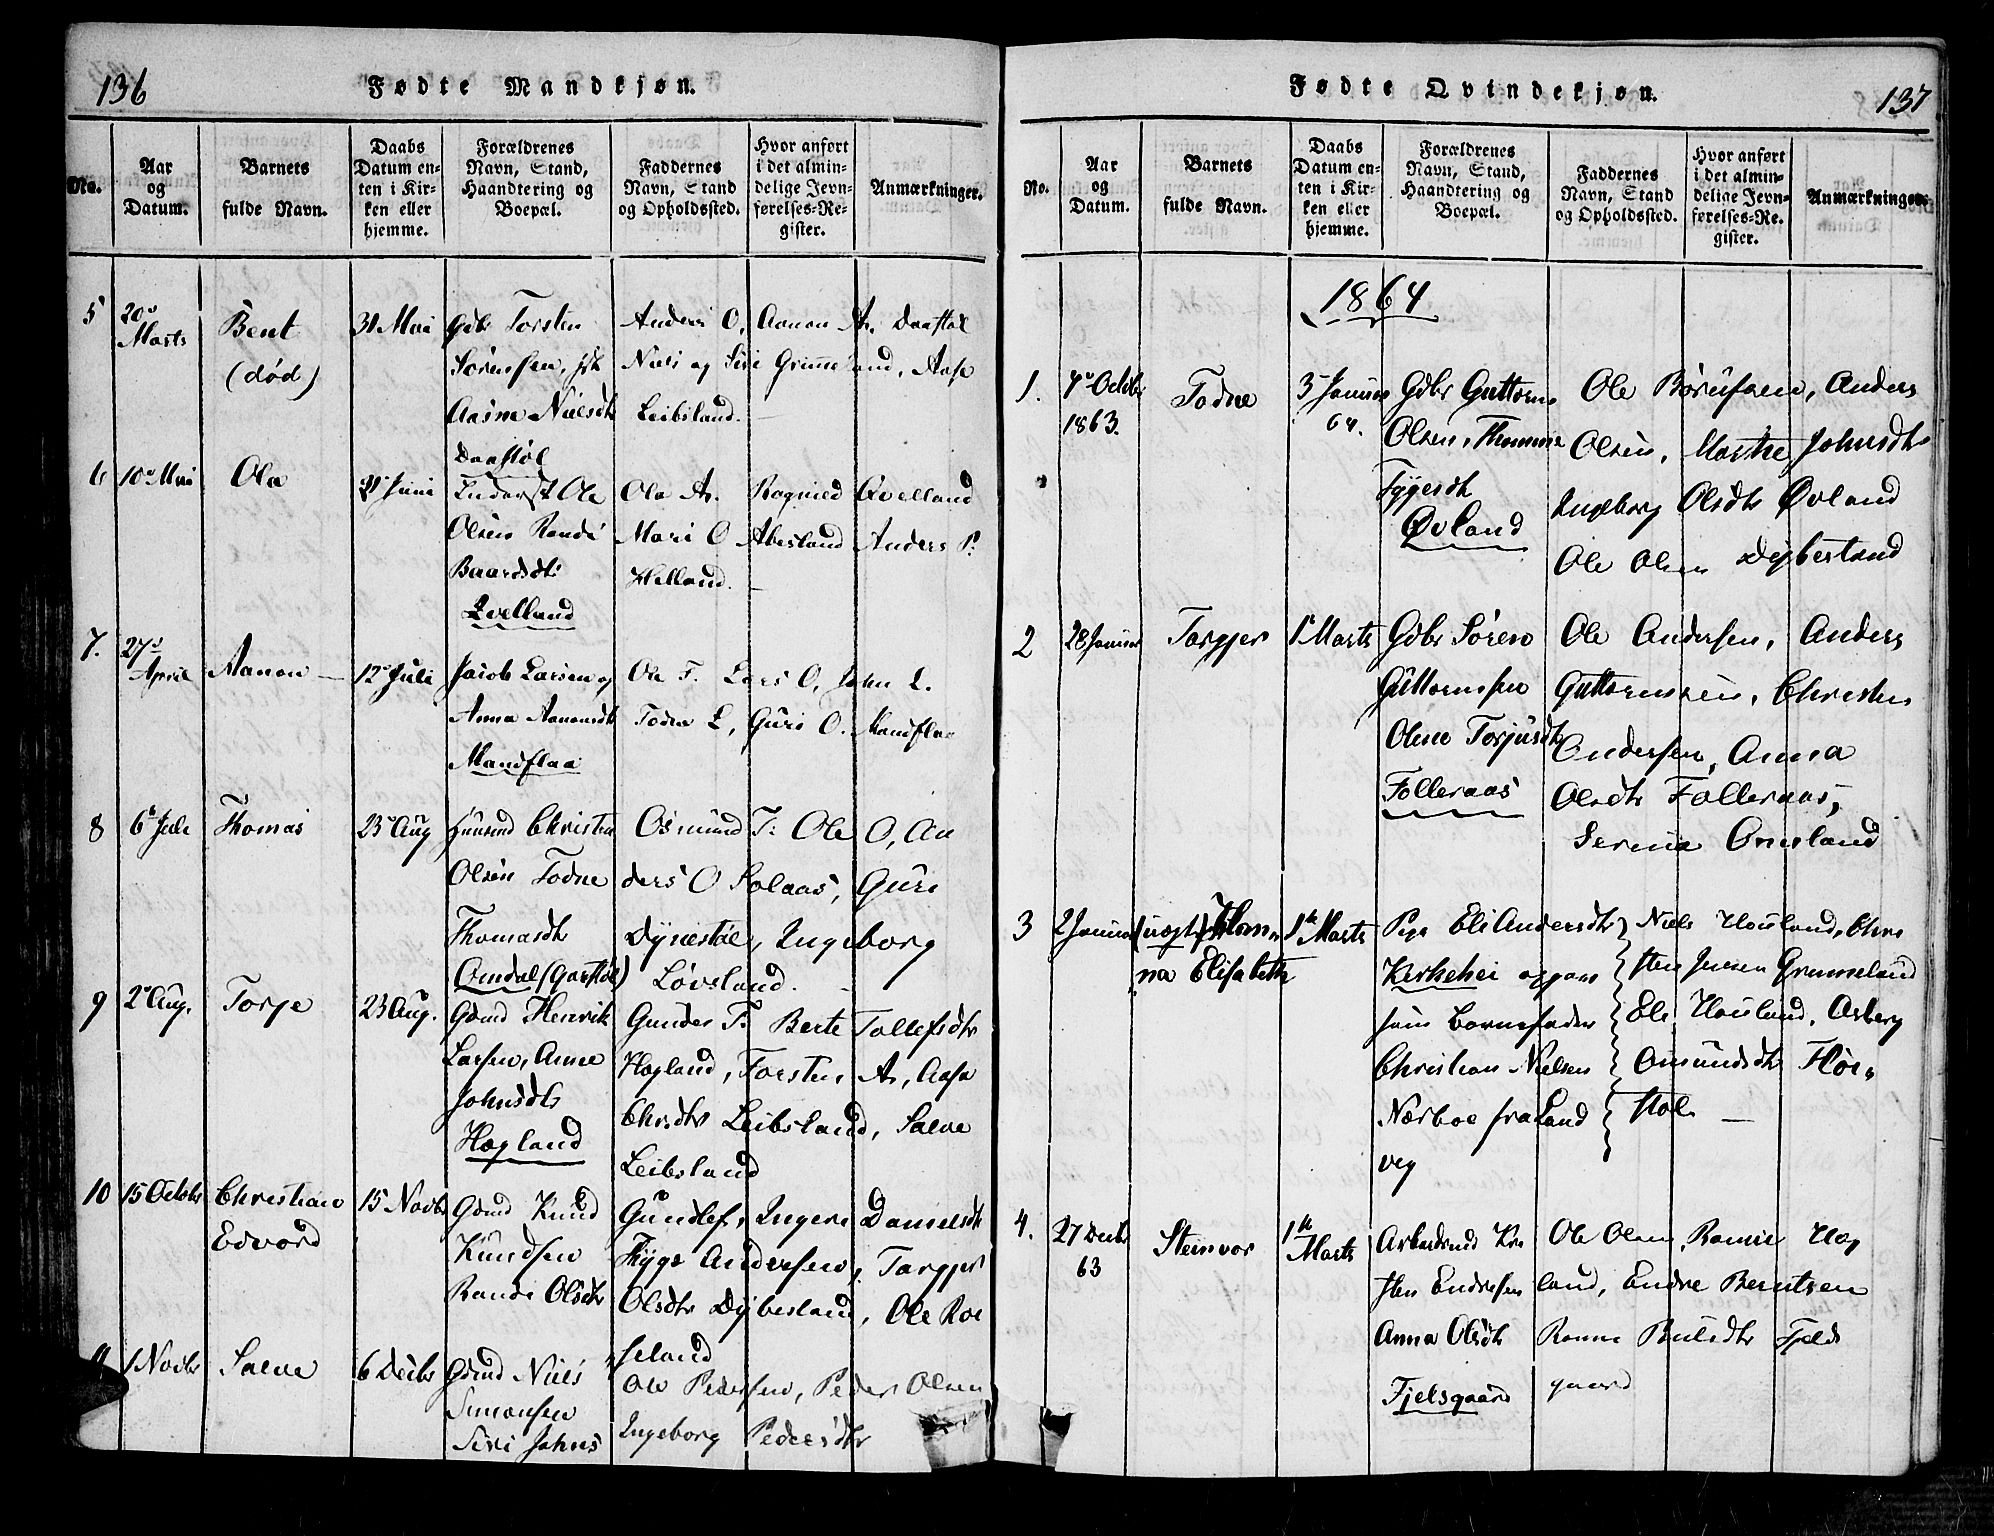 136
Fødte Mandkjøn.
No.
Aar
og
Datum.
Barnets
fulde Navn.
Daabs
Datum en-
ten i Kir-
ken eller
hjemme.
Forældrenes
Navn, Stand,
Haandtering og
Boepæl.
Faddernes
Navn, Stand
og Opholdssted.
Hvor anført
i det almin-
delige Jevn-
førelses-Re-
gister.
Anmærkninger.
5
20
Marts
Bent
(død)
31 Mai
Gdbr Torsten
Sørensen,
Aasne Nielsdtr
Daastøl
Anders O, Aanon A. Daastøl
Niels og Siri Grimeland, Aase
Leibsland. —
6
10 Mai
Ola
21 Juni
Inderst Ole
Olsen Randi
Baardsdtr
Qvelland
Ola A. Ragnild Qvelland
Mari O Abesland Anders P.
Helland. —
7.
27
April
Aanon —
12 Juli
Jacob Larsen og
Anna Aanonsdtr
Mandflaa
Ole T. Lars O, John L.
Todne L, Guri O. Mandflaa
8
6 Jule
Thomas
23 Aug
Huusmd Christen
Olsen Todne
Thomasdtr
Omdal (Gastøl)
Osmund T: Ole O, An
ders O Solaas, Guri
Dynestøl, Ingeborg
Løvsland. —
9
2 Aug.
Torje
23 Aug.
Gmd Henrik
Larsen, Anne
Johnsdtr
Høgland
Gunder T. Berte Tollefsdtr
Høgland, Torsten A, Aasa
Chrsdtr Leibsland, Salve
Leibsland
10
15 Octobr
Christian
Edvard
15 Novbr
Gmd Knud
Knudsen
Rande Olsdtr
Gundlef, Ingeri Danielsdtr
Tygs Andersen, Targjer
Olsdtr Dybesland, Ole Roe
seland
11
1 Novbr
Salve
6 Decbr
Gmd Niels
Simonsen
Siri Johns
Ole Pedersen, Peder Olsen
Ingeborg Pedersdtr
137
Fødte Qvindekjøn.
No.
Aar
og
Datum.
Barnets
fulde Navn.
Daabs
Datum en-
ten i Kir-
ken eller
hjemme.
Forældrenes
Navn, Stand,
Haandtering og
Boepæl.
Faddernes
Navn, Stand
og Opholdssted.
Hvor anført
i det almin-
delige Jevn-
førelses-Re-
gister.
Anmærkninger.
1864
1.
7 Octbr
1863.
Todne
3 Januar
64.
Gdbr Guttorm
Olsen, Thomine
Tygesdtr
Øvland
Ole Børufsen, Anders
Olsen, Marthe Johnsdtr
Ingeborg Olsdtr Øvland
Ole Olsen Dybesland
2
28 Januar
Targjer
1 Marts
Gdbr Søren
Guttormsen
Olene Torjusdtr
Følleraas
Ole Andersen, Anders
Guttormsen, Christen
Andersen, Anna
Olsdtr Følleraas,
Serine Omsland
3
2 Januar
(uægte) Han-
na Elisabeth
1ste Marts
Pige Eli Andersdtr
Kirkehei opgav
som Barnefader
Christian Nielsen
Nærboe fra Land
vig
Niels Houland, Chri
sten Jensen Grimeland
Eli Houland, Asberg
Omundsdtr Høi-
støl —
4.
27 Decbr
63
Steinvor
1ste
Marts
Arbeidsmd Kri
sten Endresen
Anna Olsdtr
Fjelsgaard
Ole Olsen, Rannie Høg
land, Endre Berntsen
Ranne Poulsdtr Fjels
gaard